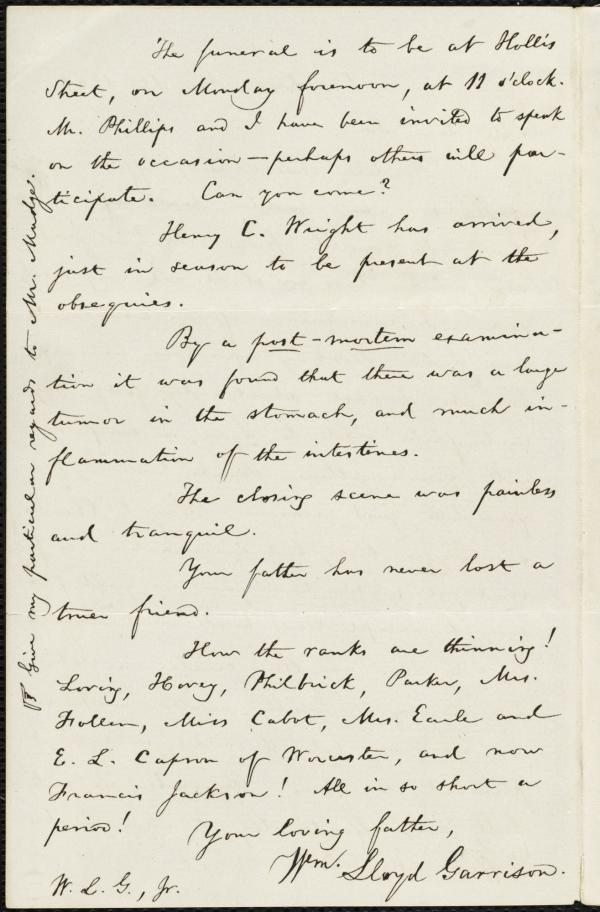 The funeral is to be at Hollis
Street, on Monday forenoon, at 11 o'clock.
Mr. Phillips and I have been invited to speak
on the occasion—perhaps others will par-
ticipate. Can you come?
Henry C. Wright has arrived,
just in season to be present at the
obsequies.
By a post-mortem examina-
tion it was found that there was a large
tumor in the stomach, and much in-
flammation of the intestines.
The closing scene was painless
and tranquil.
Your father has never lost a
truer friend.
How the ranks are thinning!
Loring, Hovey, Philbrick, Parker, Mrs.
Follen, Miss Cabot, Mrs. Earle and
E. L. Capron of Worcester, and now
Francis Jackson! All in so short a
period!
Your loving father,
Wm. Lloyd Garrison.
W. L. G., Jr.
Give my particular regards to Mr. Mudge.